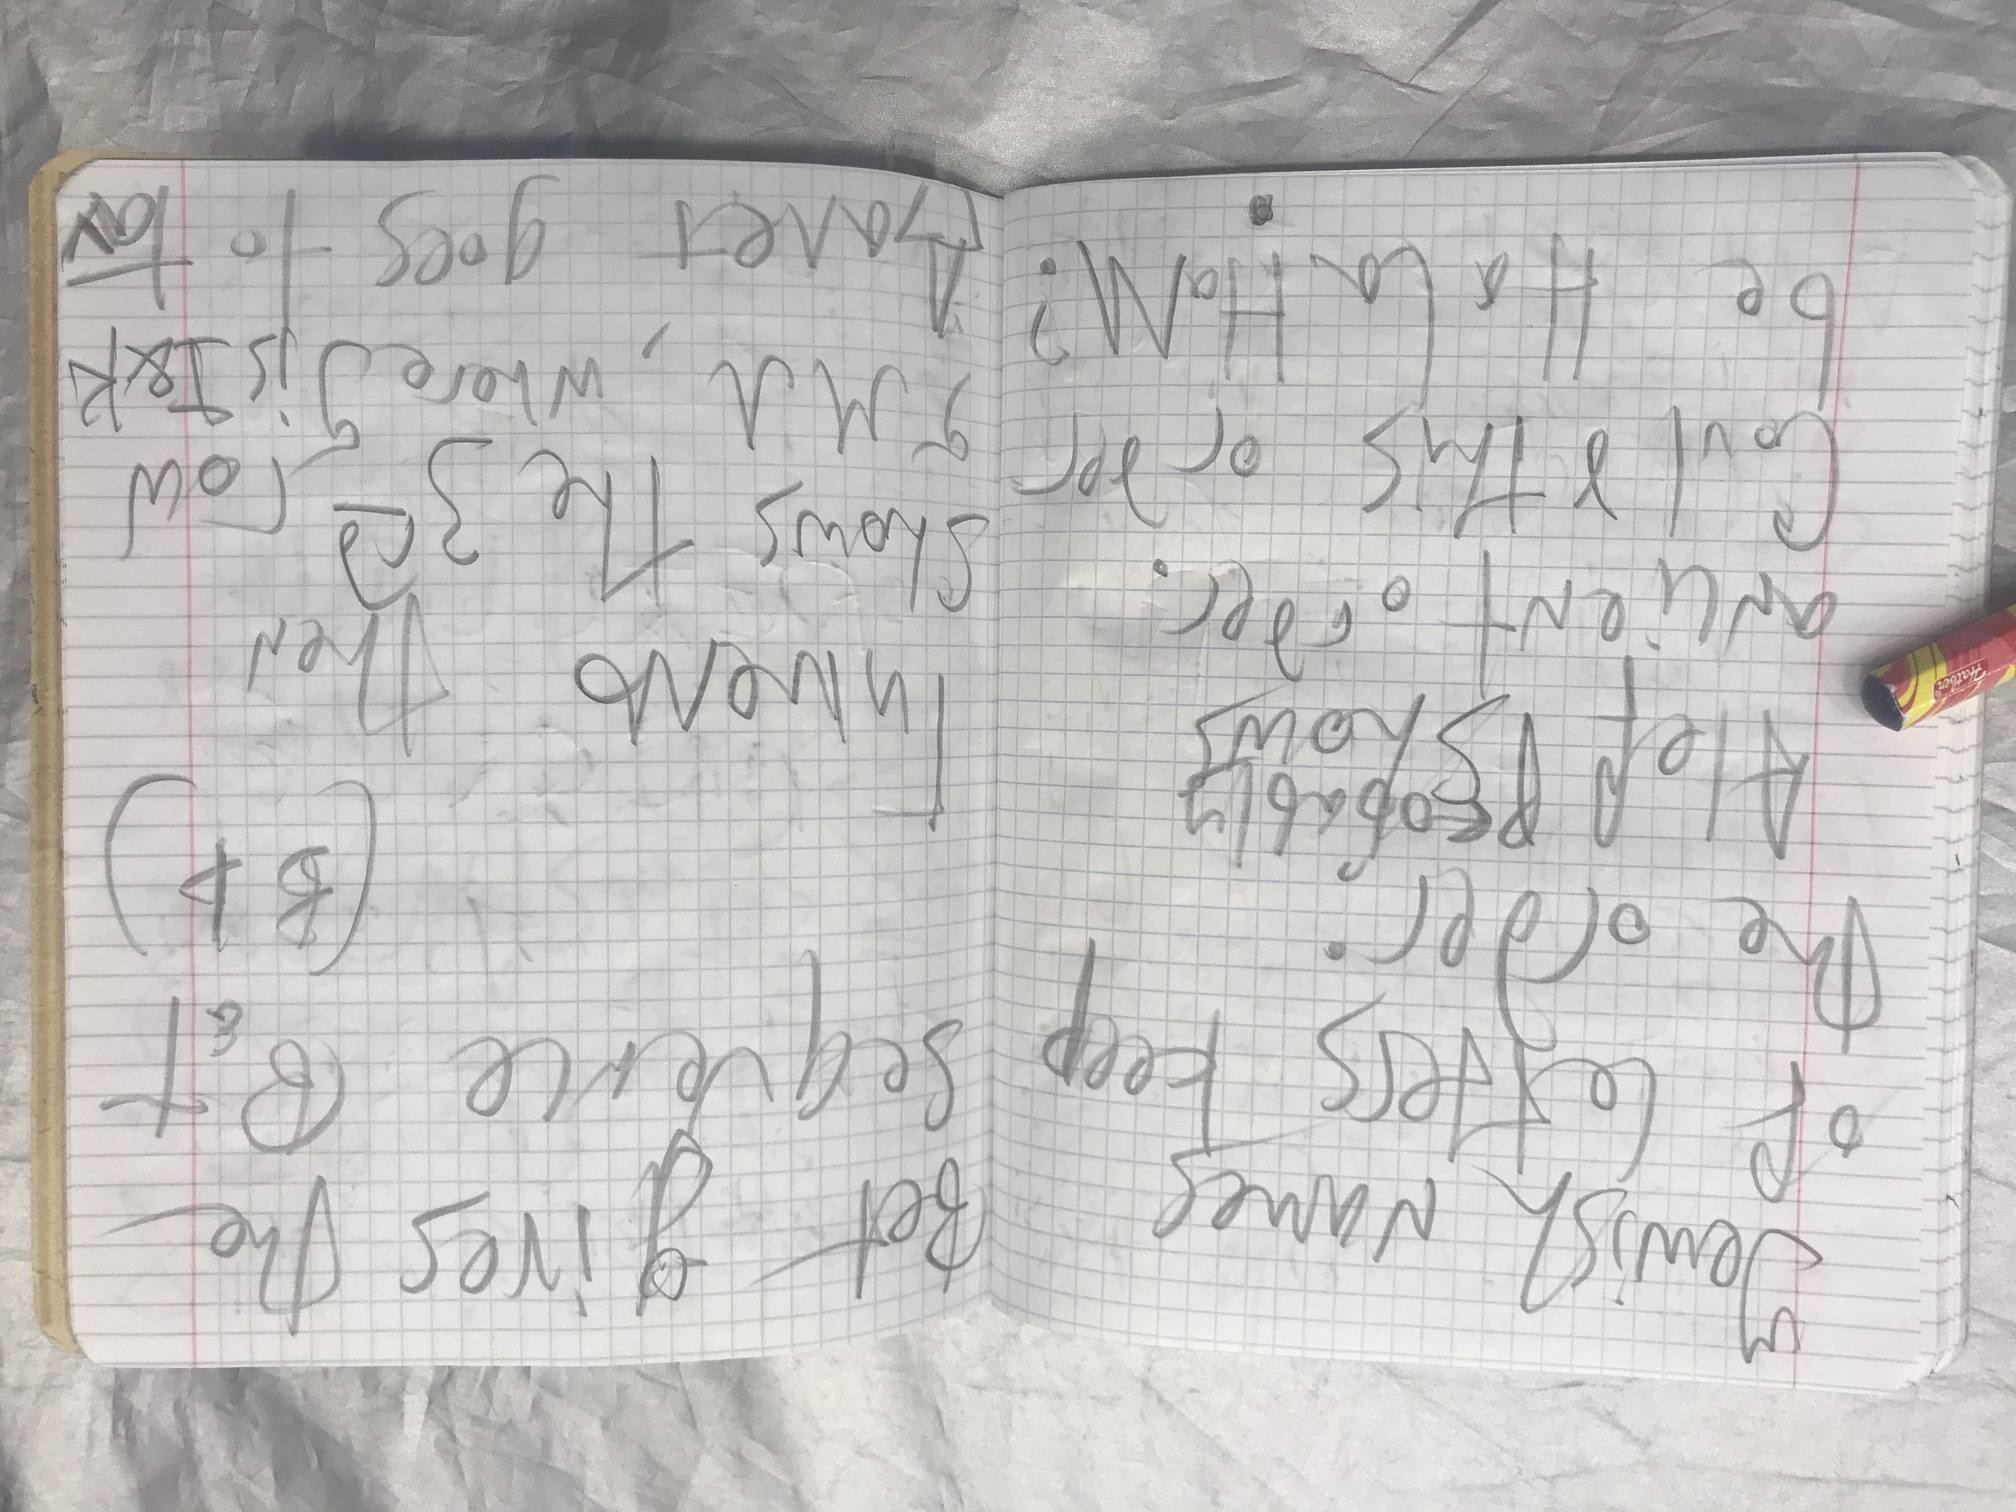 Jewish names
of letters keep
the order.
Alef probably
shows
ancient order.
Could this order
be HaLaHaM?
Bet gives the
sequence Bet
(B t)
then
shows the 3 row
where g is
goes to Tav
Hatber